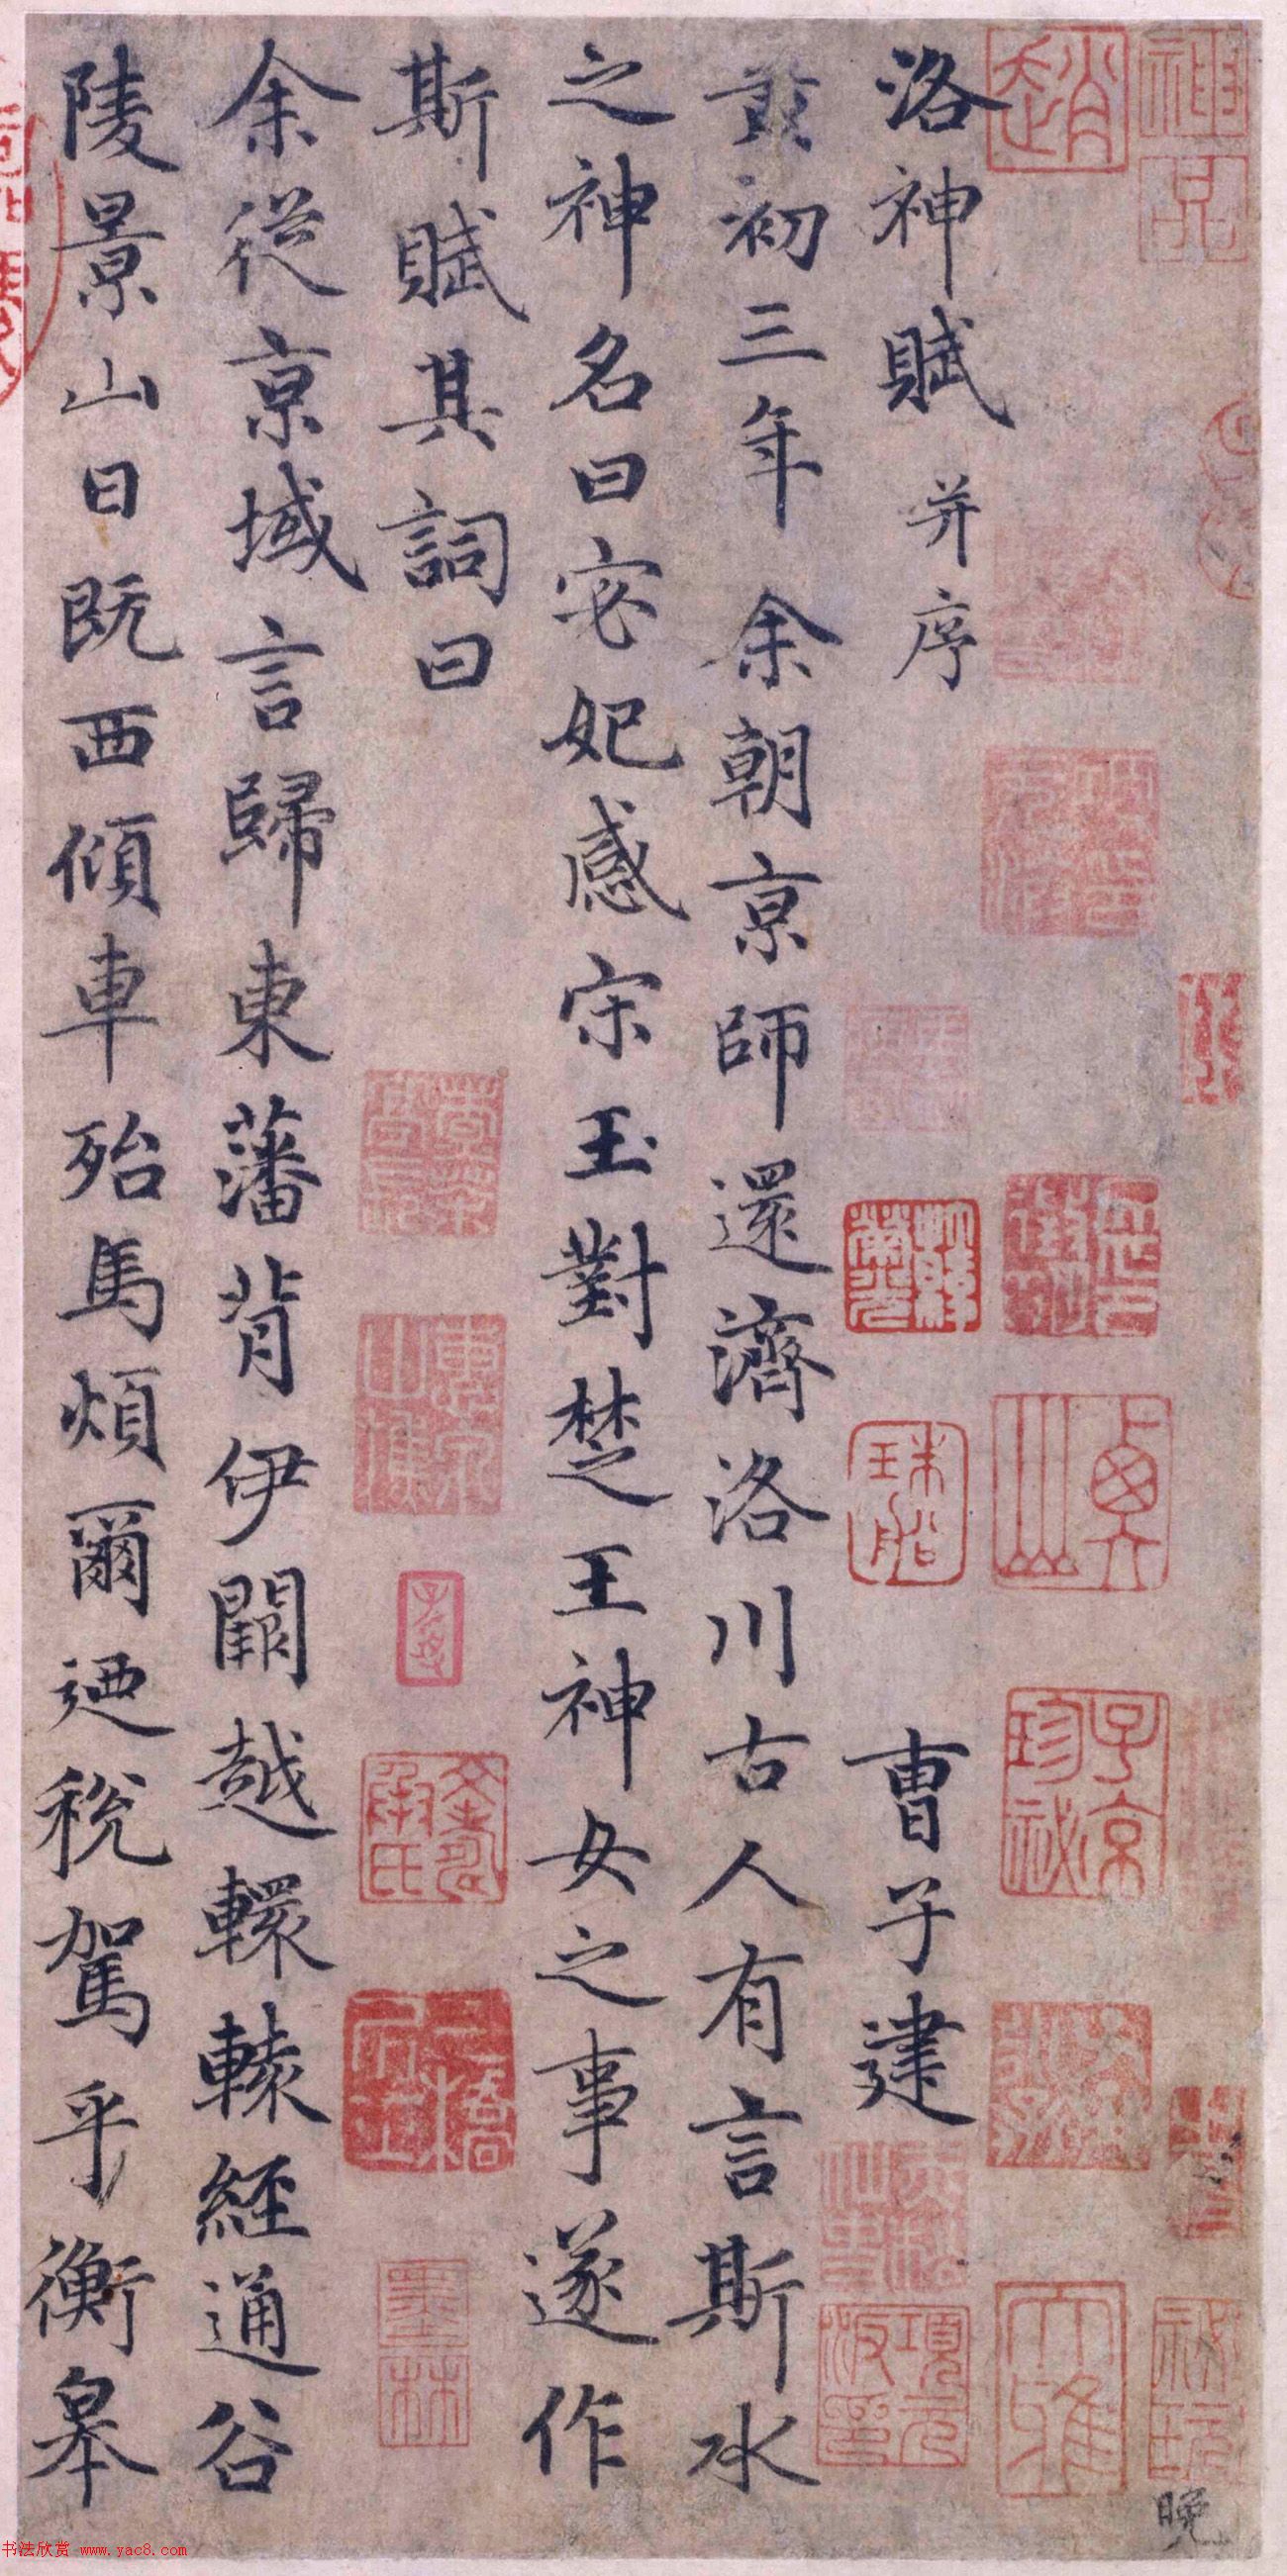 洛神賦 并序 曹子建
黄初三年余朝京師還濟洛川古人有言斯水
之神名曰宓妃感宋玉對楚王神女之事遂作
斯賦其詞曰
余從京域言歸東藩背伊闕越轘轅經通谷
陵景山日既西傾車殆馬煩爾迺稅駕乎衡皋
趙
神品
珠船
子京珍祕
項元汴印
墨林
大雅
晚
书法欣赏 www.yac8.com